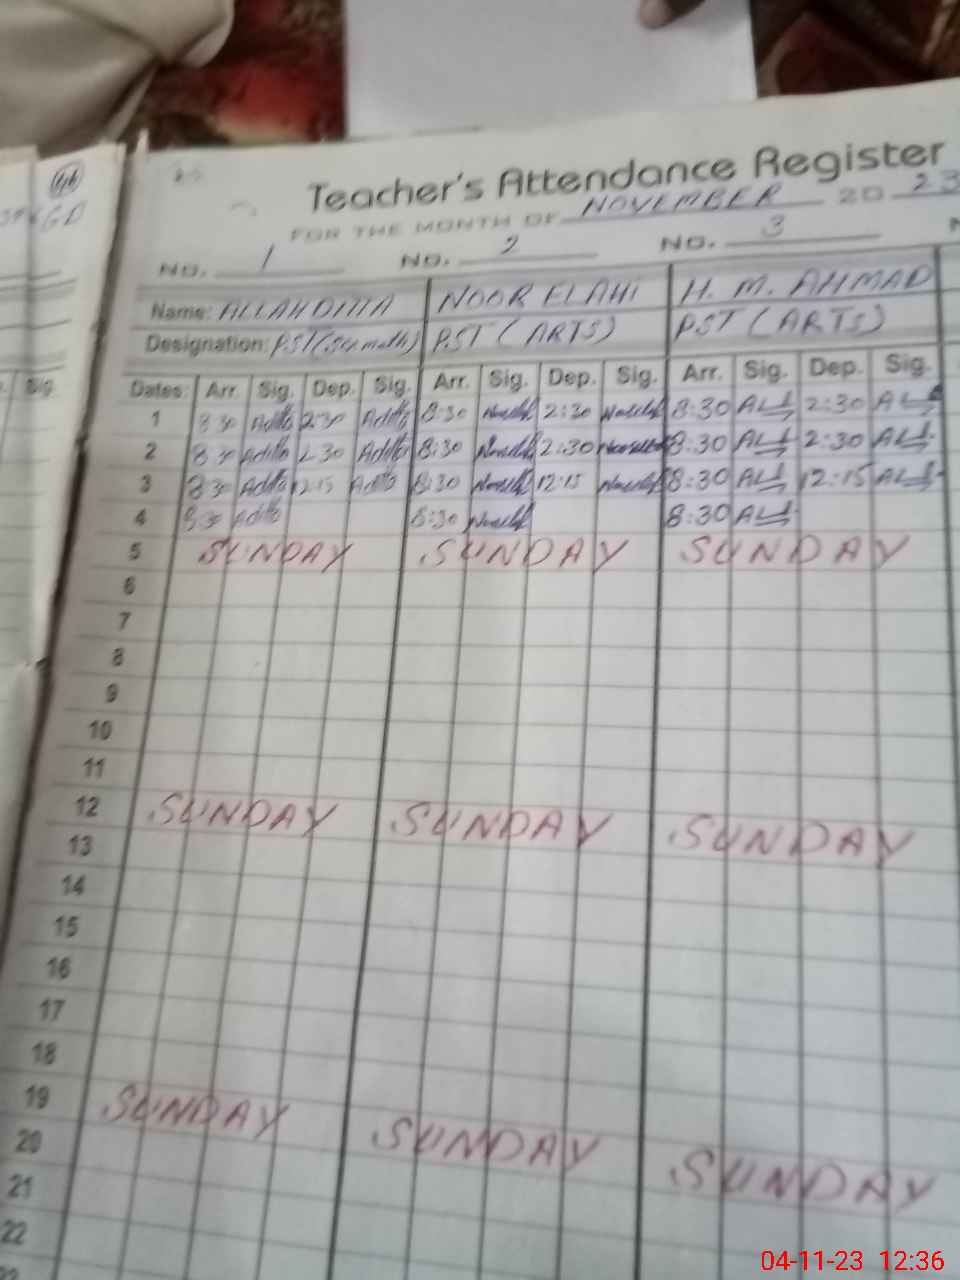 Teacher's Attendance Register
FOR THE MONTH OF NOVEMBER 20 23
NO. 1 NO. 2 NO. 3
Name: ALLAHDITTA NOOR ELAHI H. M. AHMAD
Designation: PST (Sci math) PST (ARTS) PST (ARTS)
Dates: Arr. Sig. Dep. Sig. Arr. Sig. Dep. Sig. Arr. Sig. Dep. Sig.
1 8:30 2:30 8:30 2:30 8:30 2:30
2 8:30 2:30 8:30 2:30 8:30 2:30
3 8:30 12:15 8:30 12:15 8:30 12:15
4 8:30 8:30 8:30
5 SUNDAY SUNDAY SUNDAY
6
7
8
9
10
11
12 SUNDAY SUNDAY SUNDAY
13
14
15
16
17
18
19 SUNDAY SUNDAY SUNDAY
20
21
22
Sig.
04-11-23 12:36